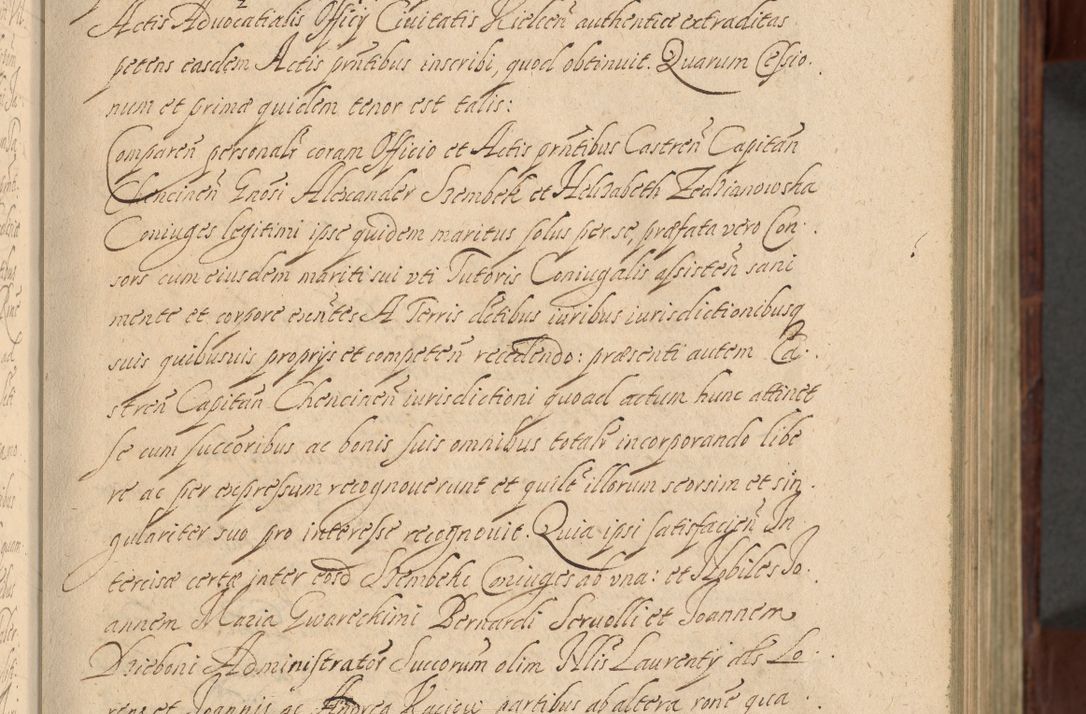 Actis Advocatialis Officÿ Civitatis Kielceñ authentice extraditas
petens easdem Actis prñtibus inscribi, quod obtinuit. Quarum Cessio
num et prima quidem tenor est talis:
Compareñ personalr̃ coram Officio et Actis prñtibus Castreñ Capitañ
Chencineñ Gnõsi Alexander Szembek et Helisabeth Zedzianowska
Coniuges legitimi ipse quidem maritus solus per se, præfata vero Con
sors cum eiusdem mariti sui uti Tutoris Coniugalis assisteñ sani
mente et corpore exeñtes A Terris dictibus iuribus iurisdictionibusq
suis quibusuis proprÿs et competeñ recedendo: præsenti autem Ca
streñ Capitañ Chencineñ iurisdictioni quoad actum hunc attinet
se cum succoribus ac bonis suis omnibus totalr̃ incorporando libe
re ac per expressum recognoverunt et quilt̃ illorum seorsim et sin
gulariter suo pro interesse recognovit. Quia ipsi satisfacieñ In
tercisæ certæ inter eosd Szembeki Coniuges ab una: et Nobiles Jo
annem Maria Gwareckimi Bernardi Servolli et Joannem
Dzieboni Administrator Succorum olim Nlis Laurentÿ als Lo
rens et Joannis ac Andrea Kaciew partibus ab altera rone qua